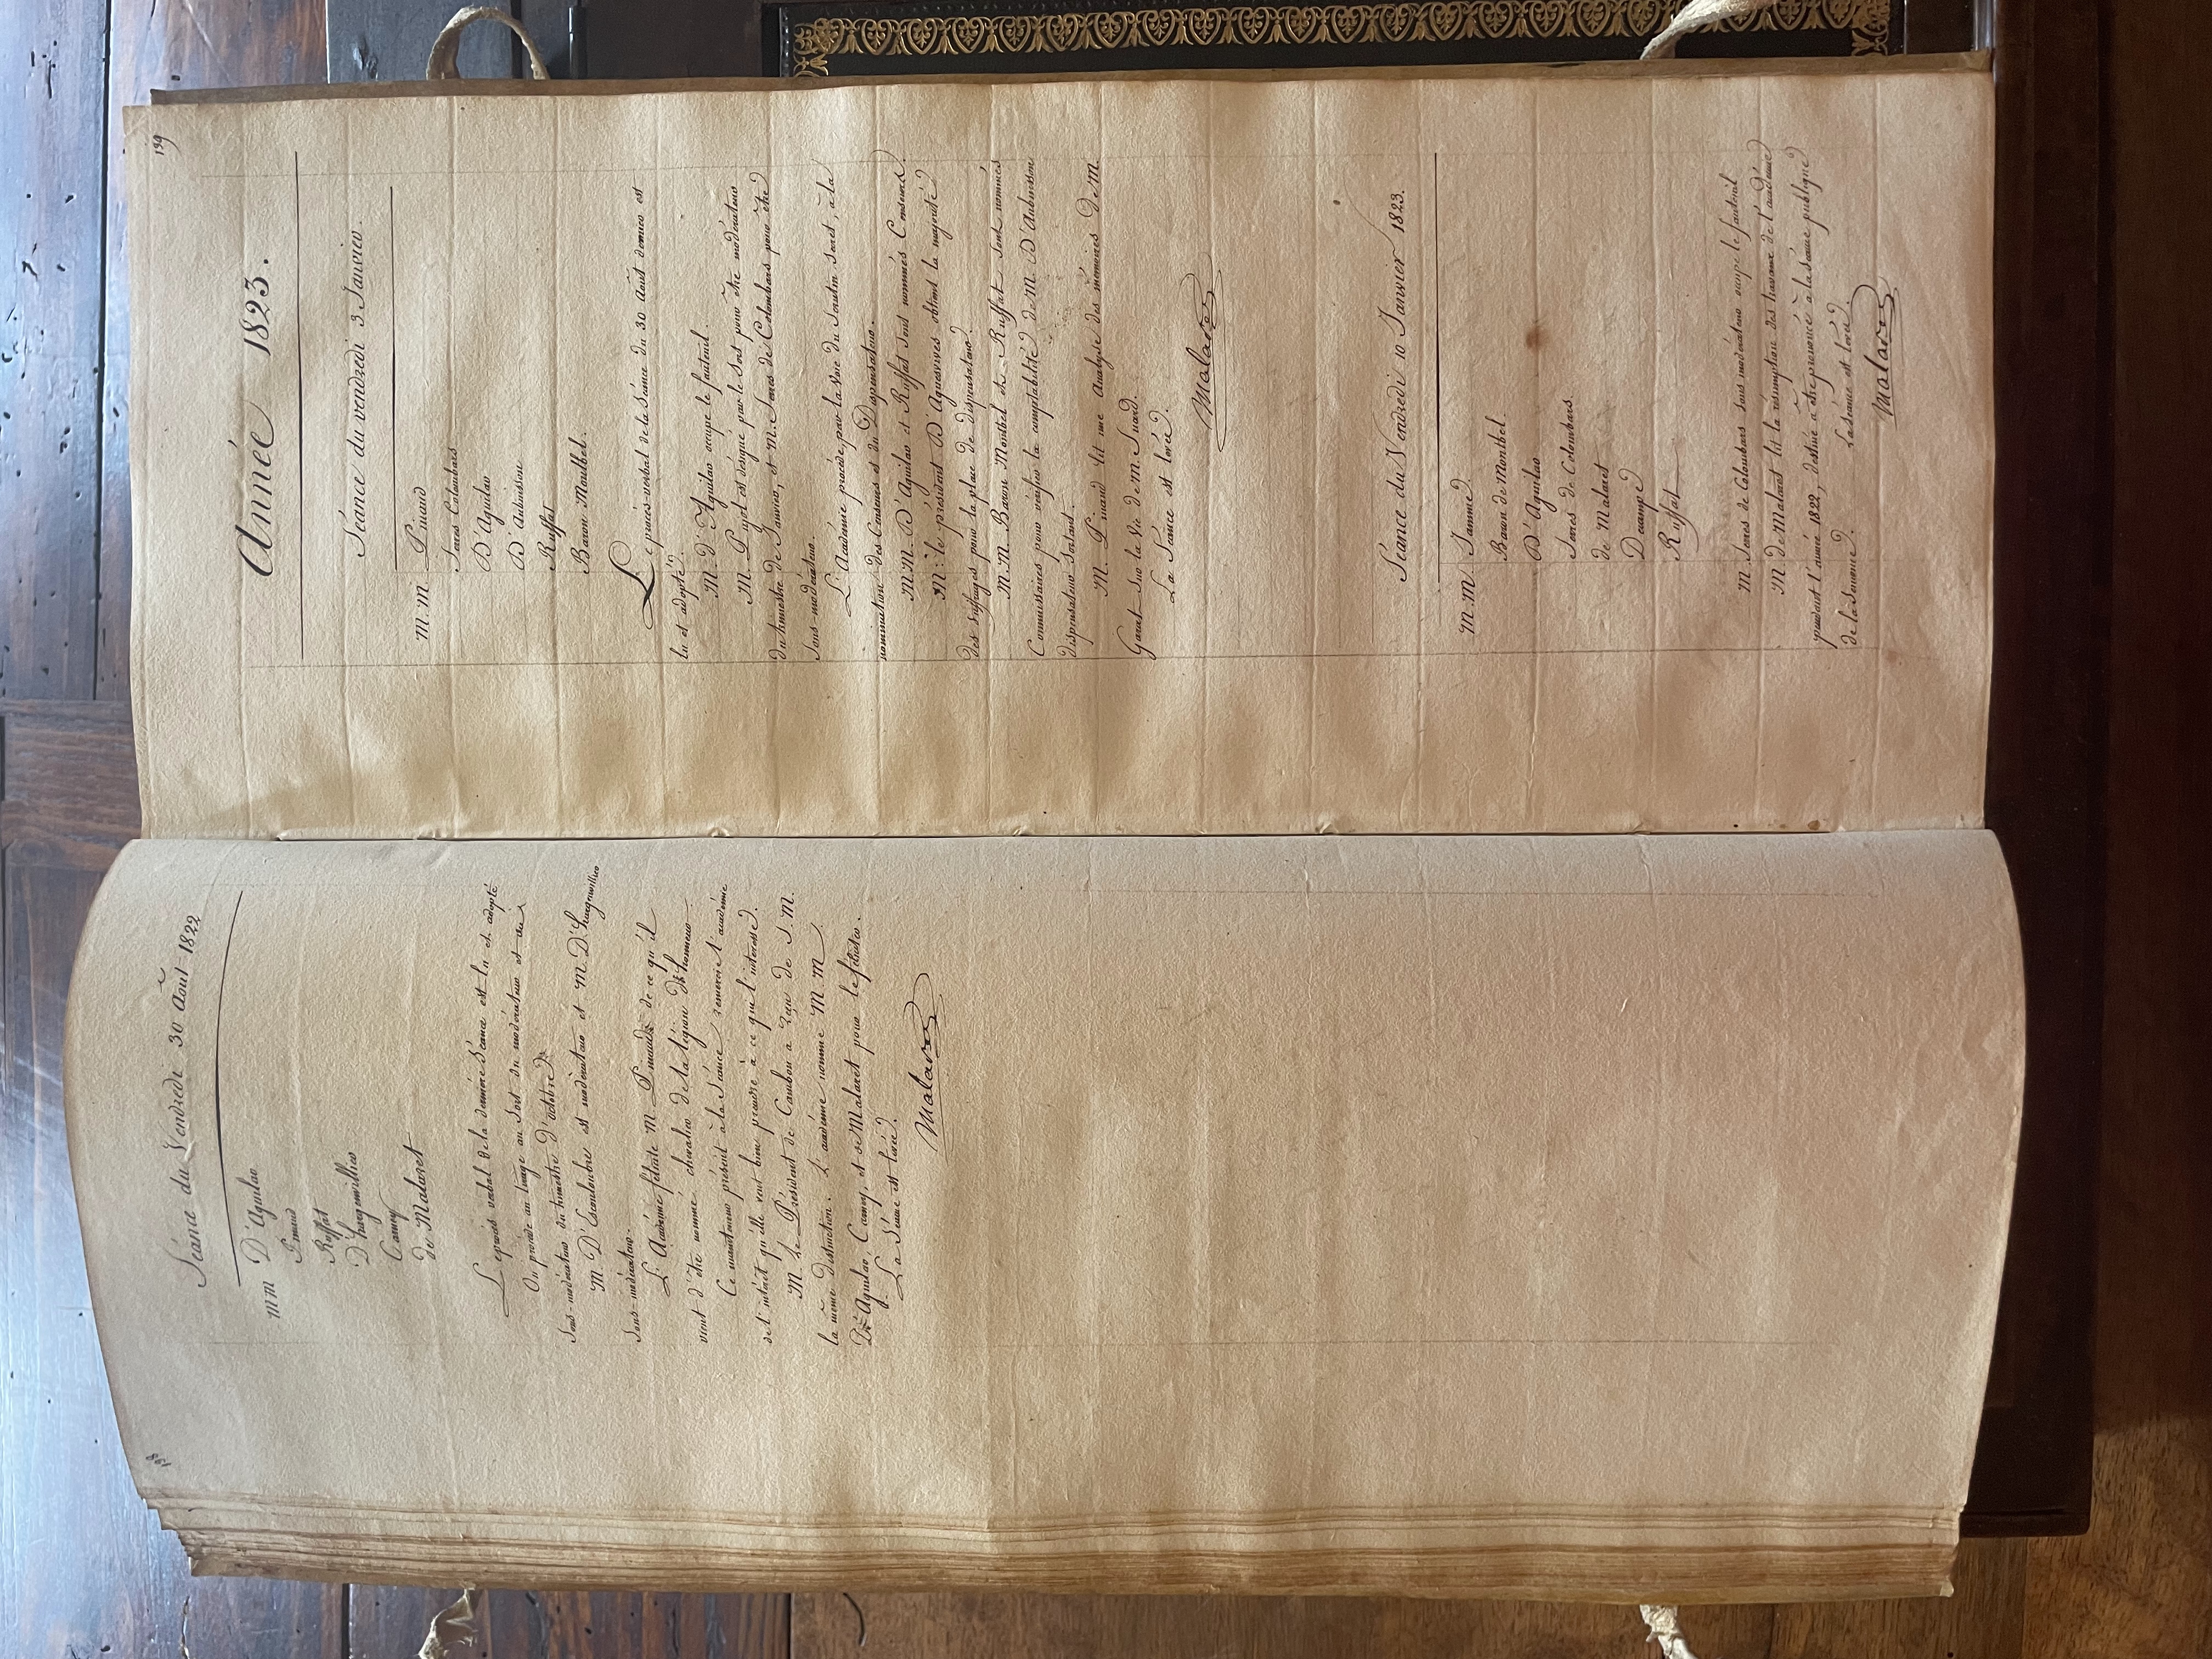 198
Séance du Vendredi 30 Août 1822
mm D'Aguilar
Pinaud
Ruffat
D'hargenvillier
Carney
de Malaret
Le procès verbal de la dernière séance est lu et adopté
On procède au tirage au sort du modérateur et du
sous-modérateur du trimestre d'octobre.
M D'Escouloubre est modérateur et M D'hargenvillier
sous-modérateur.
L'Académie félicite M Pinaud de ce qu'il
vient d'être nommé chevalier de la légion d'honneur.
Ce mainteneur présent à la Séance remercie l'académie
de l'intérêt qu'elle veut bien prendre à ce qui l'intéresse.
M. Le Président de Cambon a reçu de S. M.
la même distinction. L'académie nomme M M
D'Aguilar, Carney, et de Malaret pour le féliciter.
La Séance est levée.
Malaret
199
Année 1823.
Séance du vendredi 3 Janvier.
M. M. Pinaud
Serres Colombars
D'Aguilar
D'Aubuisson
Ruffat
Baron Montbel.
Le procès-verbal de la Séance du 30 Août dernier est
lu et adopté.
M. D'Aguilar occupe le fauteuil.
M. Pujol est désigné par le Sort pour être modérateur
du trimestre de Janvier, et M. Serres de Colombars pour être
sous-modérateur.
L'Académie procède par la voie du Scrutin secret, à la
nomination des Censeurs et du Dispensateur.
MM. D'Aguilar et Ruffat sont nommés Censeurs.
M. le président D'Aguesvives obtient la majorité
des suffrages pour la place de dispensateur.
M. M. Baron Montbel et Ruffat sont nommés
Commissaires pour vérifier la comptabilité de M. D'Aubuisson
dispensateur Sortant.
M. Pinaud lit une Analyse des mémoires de M.
Garat sur la vie de M. Suard.
La Séance est levée.
Malaret
Séance du Vendredi 10 Janvier 1823.
M. M. Jamme
Baron de Montbel
D'Aguilar
Serres de Colombars
de Malaret
Decampe
Ruffat
M Serres de Colombars sous modérateur occupe le fauteuil
M de Malaret lit la résumption des travaux de l'académie
pendant l'année 1822, destiné a etre prononcé a la Séance publique
de la Semonce. La Séance est levée.
Malaret